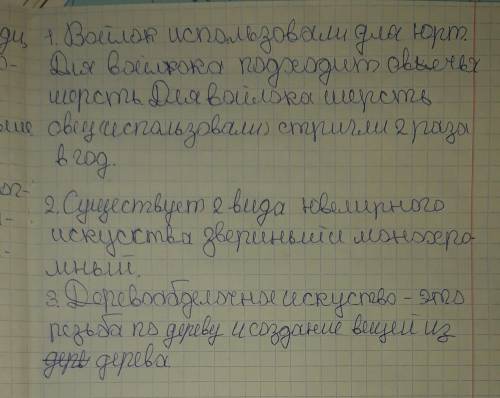 диц
1. Войлок использовали для юрт.
Для войлока подходит овечья
шерсть. Для войлока шерсть
овец использовали, стригли 2 раза
в год.
2. Существует 2 вида ювелирного
искуства звериный и монохро-
мный.
3. Деревообделочное искуство - это
резьба по дереву и создание вещей из
дерева